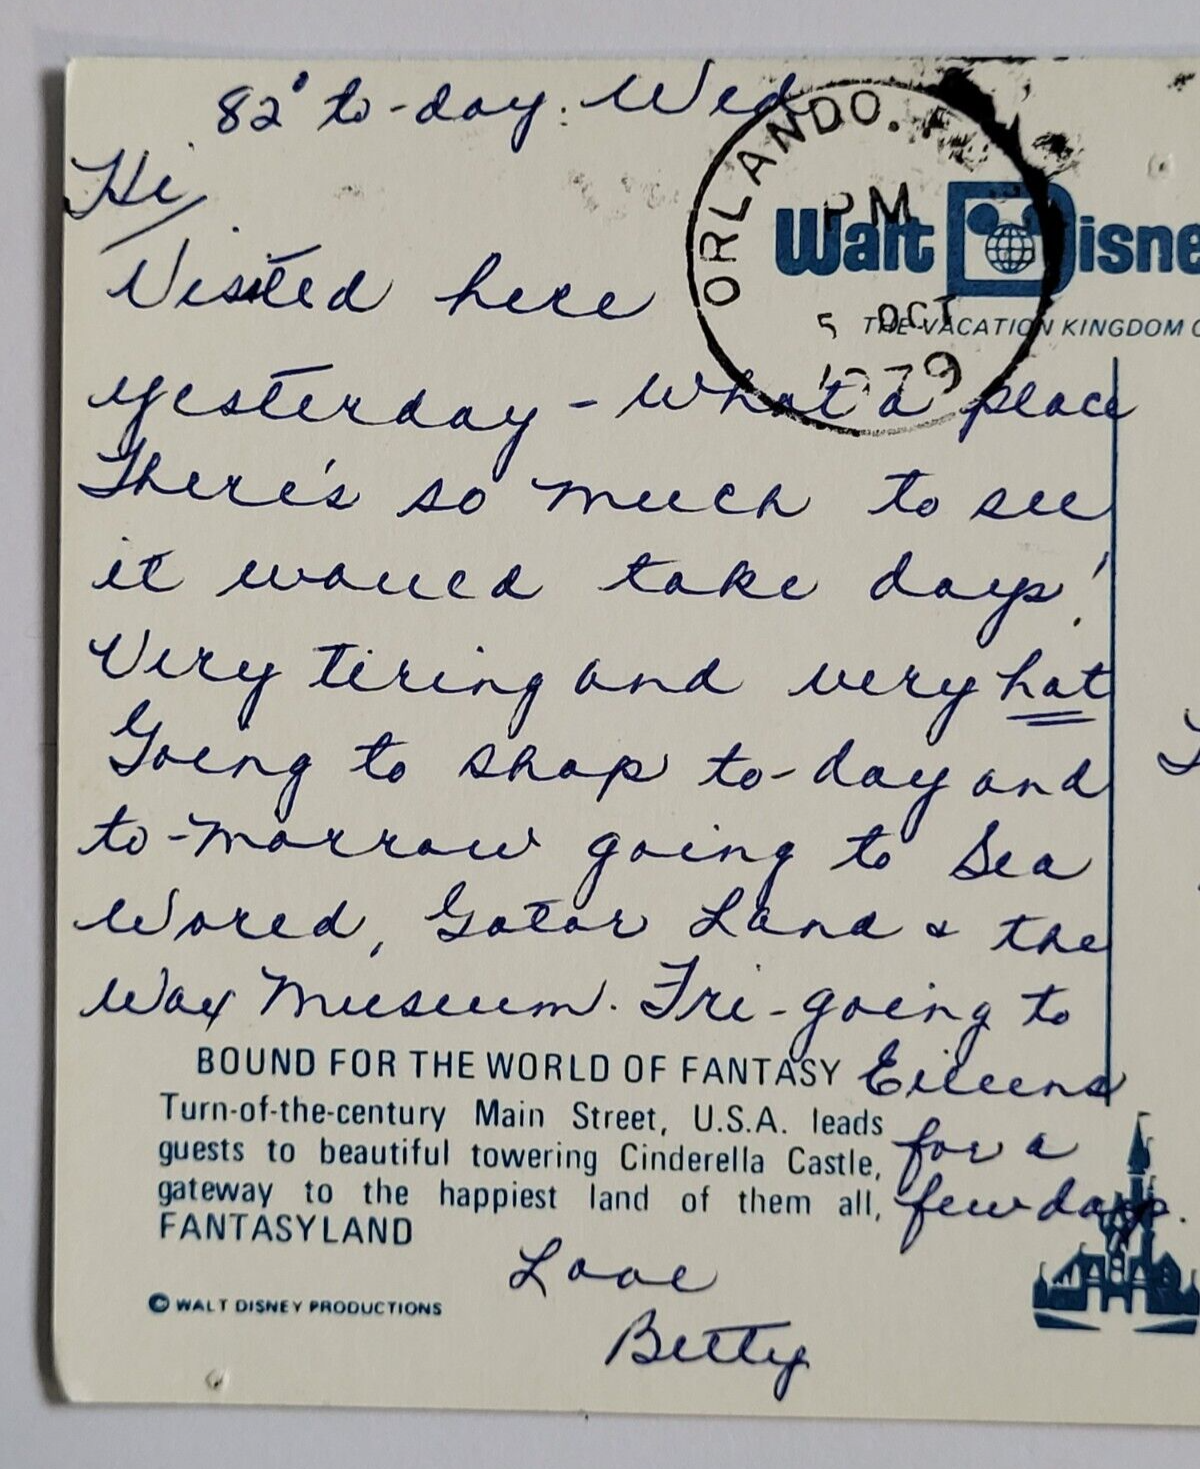 82° to-day. Wed
Hi,
ORLANDO.
PM
5 OCT
1979
Walt Disne
THE VACATION KINGDOM O
Visited here
yesterday - what a place
There's so much to see
it would take days!
Very tiring and very hot
Going to shop to-day and
to-morrow going to Sea
World, Gator Land & the
Wax Museum. Fri-going to
Eileens
for a
few days.
BOUND FOR THE WORLD OF FANTASY
Turn-of-the-century Main Street, U.S.A. leads
guests to beautiful towering Cinderella Castle,
gateway to the happiest land of them all,
FANTASYLAND
Love
Betty
© WALT DISNEY PRODUCTIONS